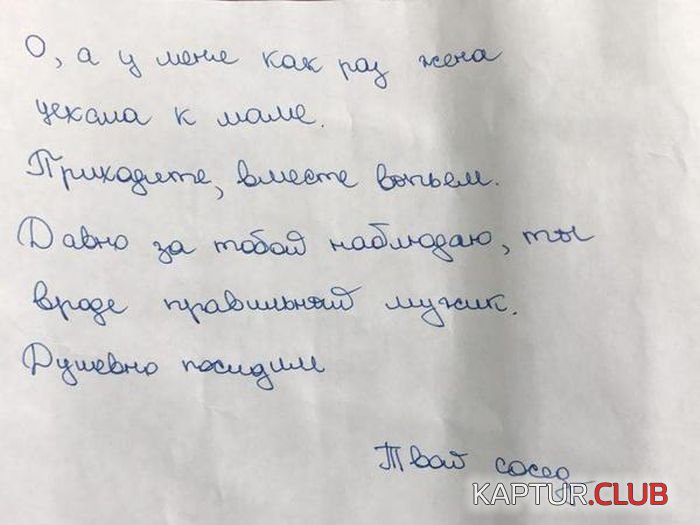 О, а у меня как раз жена
уехала к маме.
Приходите, вместе выпьем.
Давно за тобой наблюдаю, ты
вроде правильный мужик.
Душевно посидим
Твой сосед
KAPTUR.CLUB